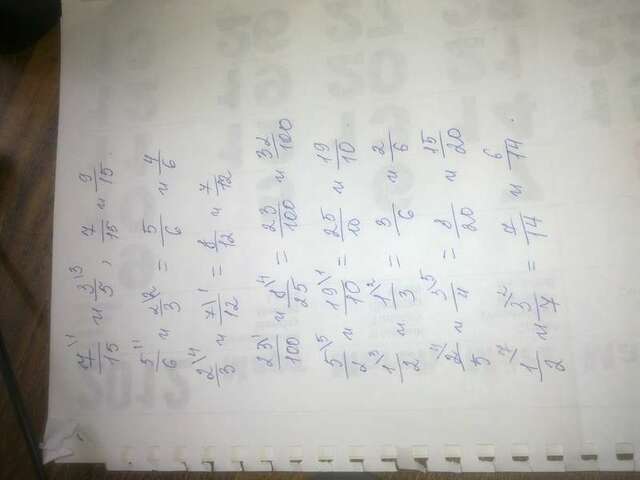 7\1/15 и 3\3/5, 7/15 и 9/15
5\1/6 и 2\2/3 = 5/6 и 4/6
2\4/3 и 7\1/12 = 8/12 и 7/12
23\1/100 и 8\4/25 = 23/100 и 32/100
5\5/2 и 19\1/10 = 25/10 и 19/10
1\3/2 и 1\2/3 = 3/6 и 2/6
2\4/5 и 3\5/4 = 8/20 и 15/20
1\7/2 и 3\2/7 = 7/14 и 6/14